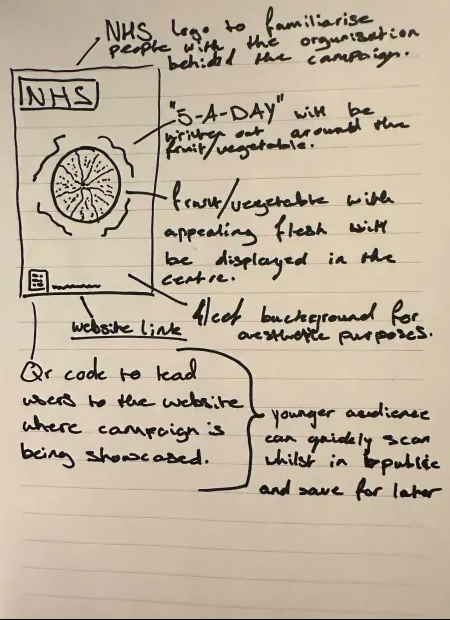 NHS logo to familiarise
people with the organisation
behind the campaign.
NHS
"5-A-DAY" will be
written out around the
fruit/vegetable.
fruit/vegetable with
appealing flesh will
be displayed in the
centre.
background for
aesthetic purposes.
website link
Qr code to lead
users to the website
where campaign is
being showcased.
younger audience
can quickly scan
whilst in public
and save for later